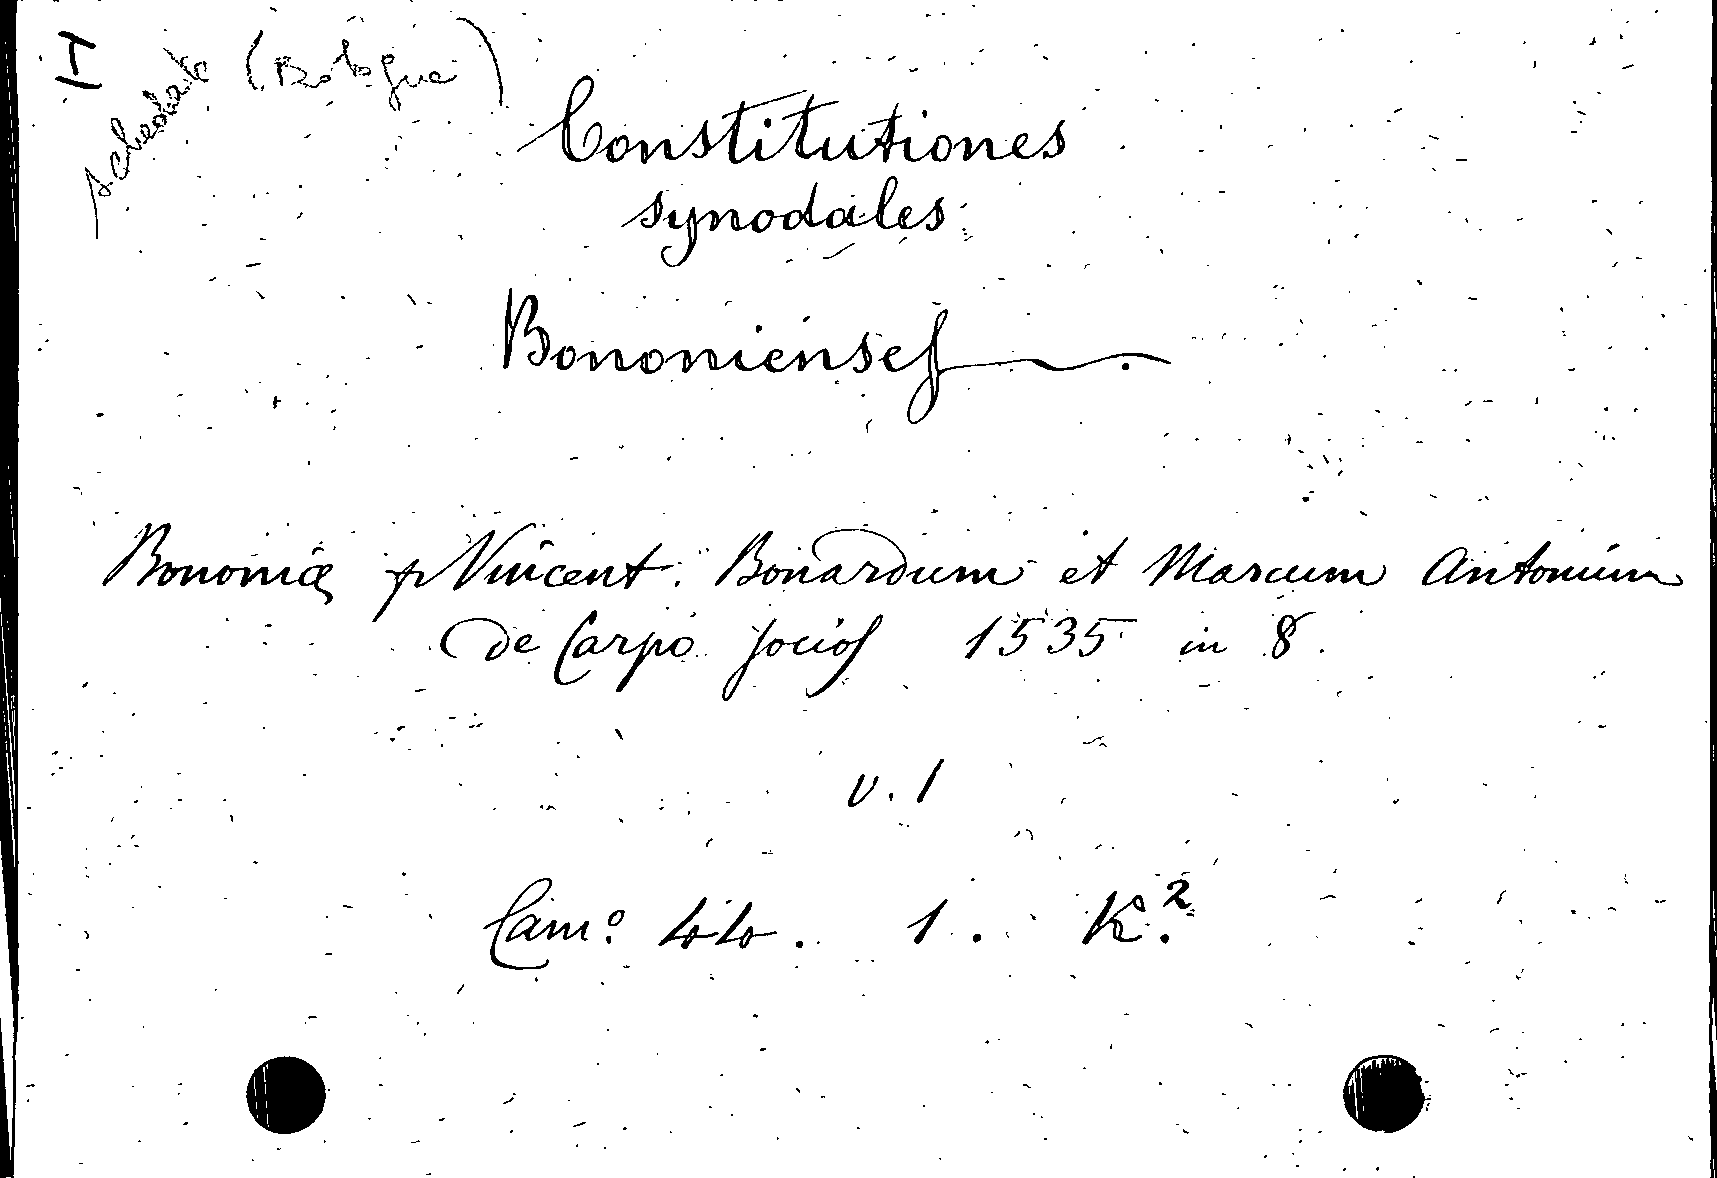 I
schedato
(Bologna)
Constitutiones
synodales
Bononienses
Bononiæ p Vincent. Bonardum et Marcum Antonium
de Carpo socios 1535 in 8.
v. 1
Cam.º 1. K.²